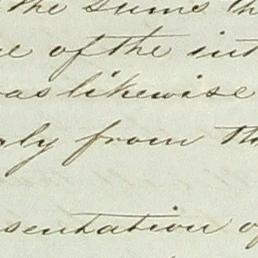 the sums th
e of the int
as likewise
ly from th
sentation of